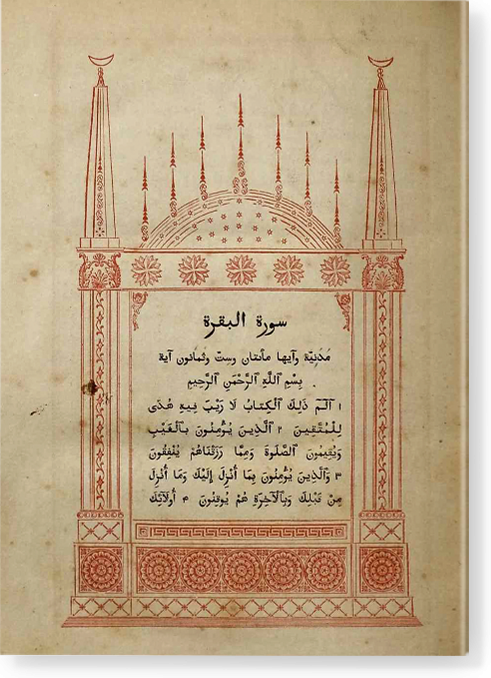 سورة البقرة
مَدَنِيّة وآيها مائتان وستّ وثمانون آية
بِسْمِ اللَّهِ ٱلرَّحْمَنِ ٱلرَّحِيمِ
١ الٓمٓ ذَلِكَ ٱلْكِتَابُ لَا رَيْبَ فِيهِ هُدًى
لِلْمُتَّقِينَ ٢ ٱلَّذِينَ يُؤْمِنُونَ بِٱلْغَيْبِ
وَيُقِيمُونَ ٱلصَّلٰوةَ وَمِمَّا رَزَقْنَاهُمْ يُنْفِقُونَ
٣ وَٱلَّذِينَ يُؤْمِنُونَ بِمَا أُنْزِلَ إِلَيْكَ وَمَا أُنْزِلَ
مِنْ قَبْلِكَ وَبِٱلْآخِرَةِ هُمْ يُوقِنُونَ ۴ أُولَائِكَ